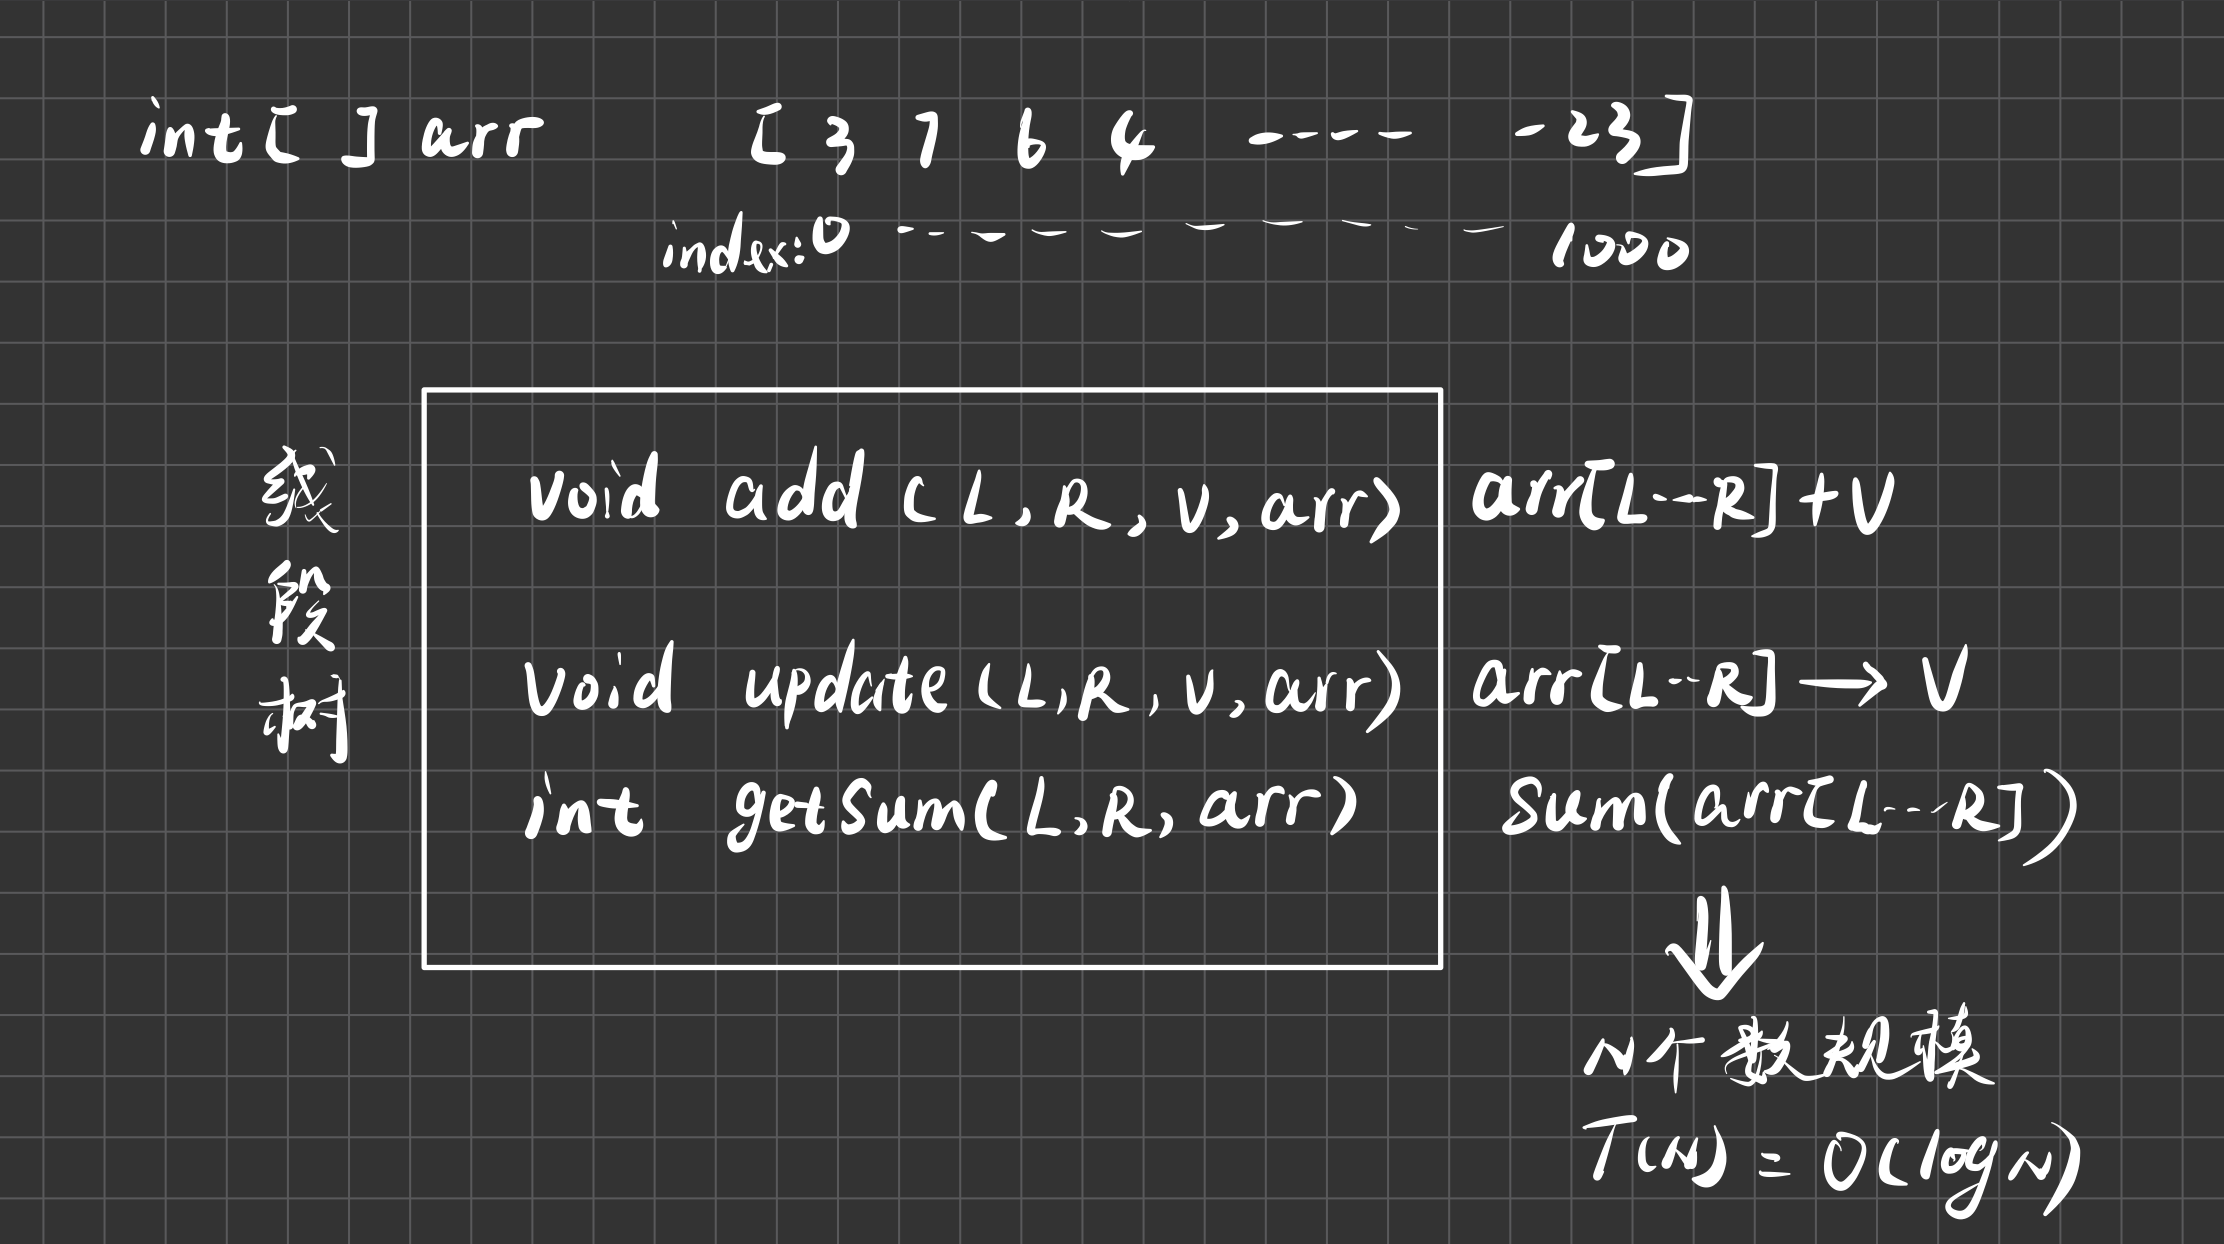 int[ ] arr [ 3 7 6 4 ---- -23]
index:0 ---------- 1000
线段树
void add (L, R, V, arr) arr[L---R]+V
void update (L,R, V, arr) arr[L--R]→V
int getSum(L,R, arr) Sum(arr[L---R])
⇓
N个数规模
T(N) = O(logN)